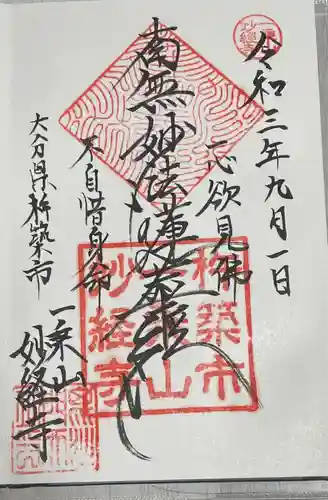 令和三年九月一日
一心欲見佛
南無妙法蓮華経
不自惜身命
大分県杵築市
一乗山
妙経寺
杵築市
一乗山
妙経寺